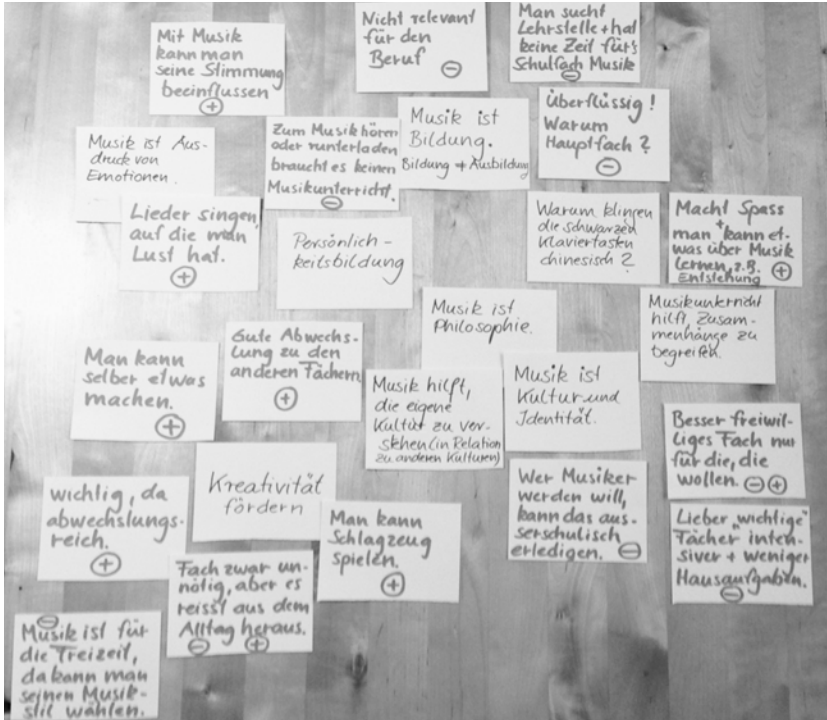 Mit Musik
kann man
seine Stimmung
beeinflussen
+
Nicht relevant
für den
Beruf
-
Man sucht
Lehrstelle + hat
keine Zeit für's
Schulfach Musik
-
Musik ist Aus-
druck von
Emotionen.
Zum Musik hören
oder runterladen
braucht es keinen
Musikunterricht.
-
Musik ist
Bildung.
Bildung ≠ Ausbildung
Überflüssig!
Warum
Hauptfach?
-
Lieder singen,
auf die man
Lust hat.
+
Persönlich-
keitsbildung
Warum klingen
die schwarzen
Klaviertasten
chinesisch?
Macht Spass
+
man kann et-
was über Musik
lernen, z.B. +
Entstehung
Musik ist
Philosophie.
Musikunterricht
hilft, Zusam-
menhänge zu
begreifen.
Man kann
selber etwas
machen.
+
Gute Abwechs-
lung zu den
anderen Fächern
+
Musik hilft,
die eigene
Kultur zu ver-
stehen (in Relation
zu anderen Kulturen)
Musik ist
Kultur und
Identität.
Besser freiwil-
liges Fach nur
für die, die
wollen. - +
wichtig, da
abwechslungs-
reich.
+
Kreativität
fördern
Man kann
Schlagzeug
spielen.
+
Wer Musiker
werden will,
kann das aus-
serschulisch
erledigen. -
Lieber „wichtige"
Fächer inten-
siver + weniger
Hausaufgaben.
-
Fach zwar un-
nötig, aber es
reisst aus dem
Alltag heraus.
- +
-
Musik ist für
die Freizeit,
da kann man
seinen Musik-
stil wählen.